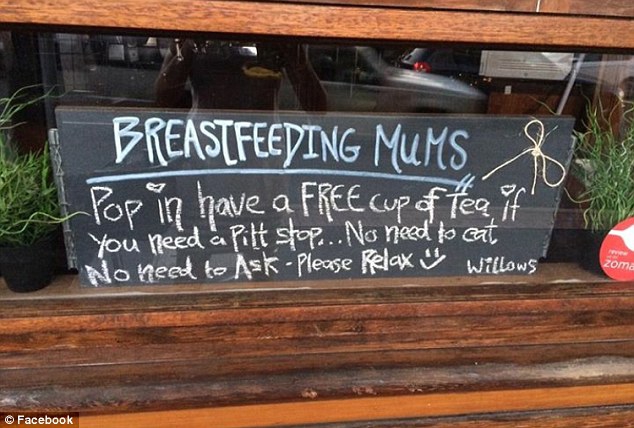 BREASTFEEDING MUMS
Pop in have a FREE cup of Tea if
You need a Pitt stop... No need to eat
No need to Ask - Please Relax
Willows
zoma
© Facebook